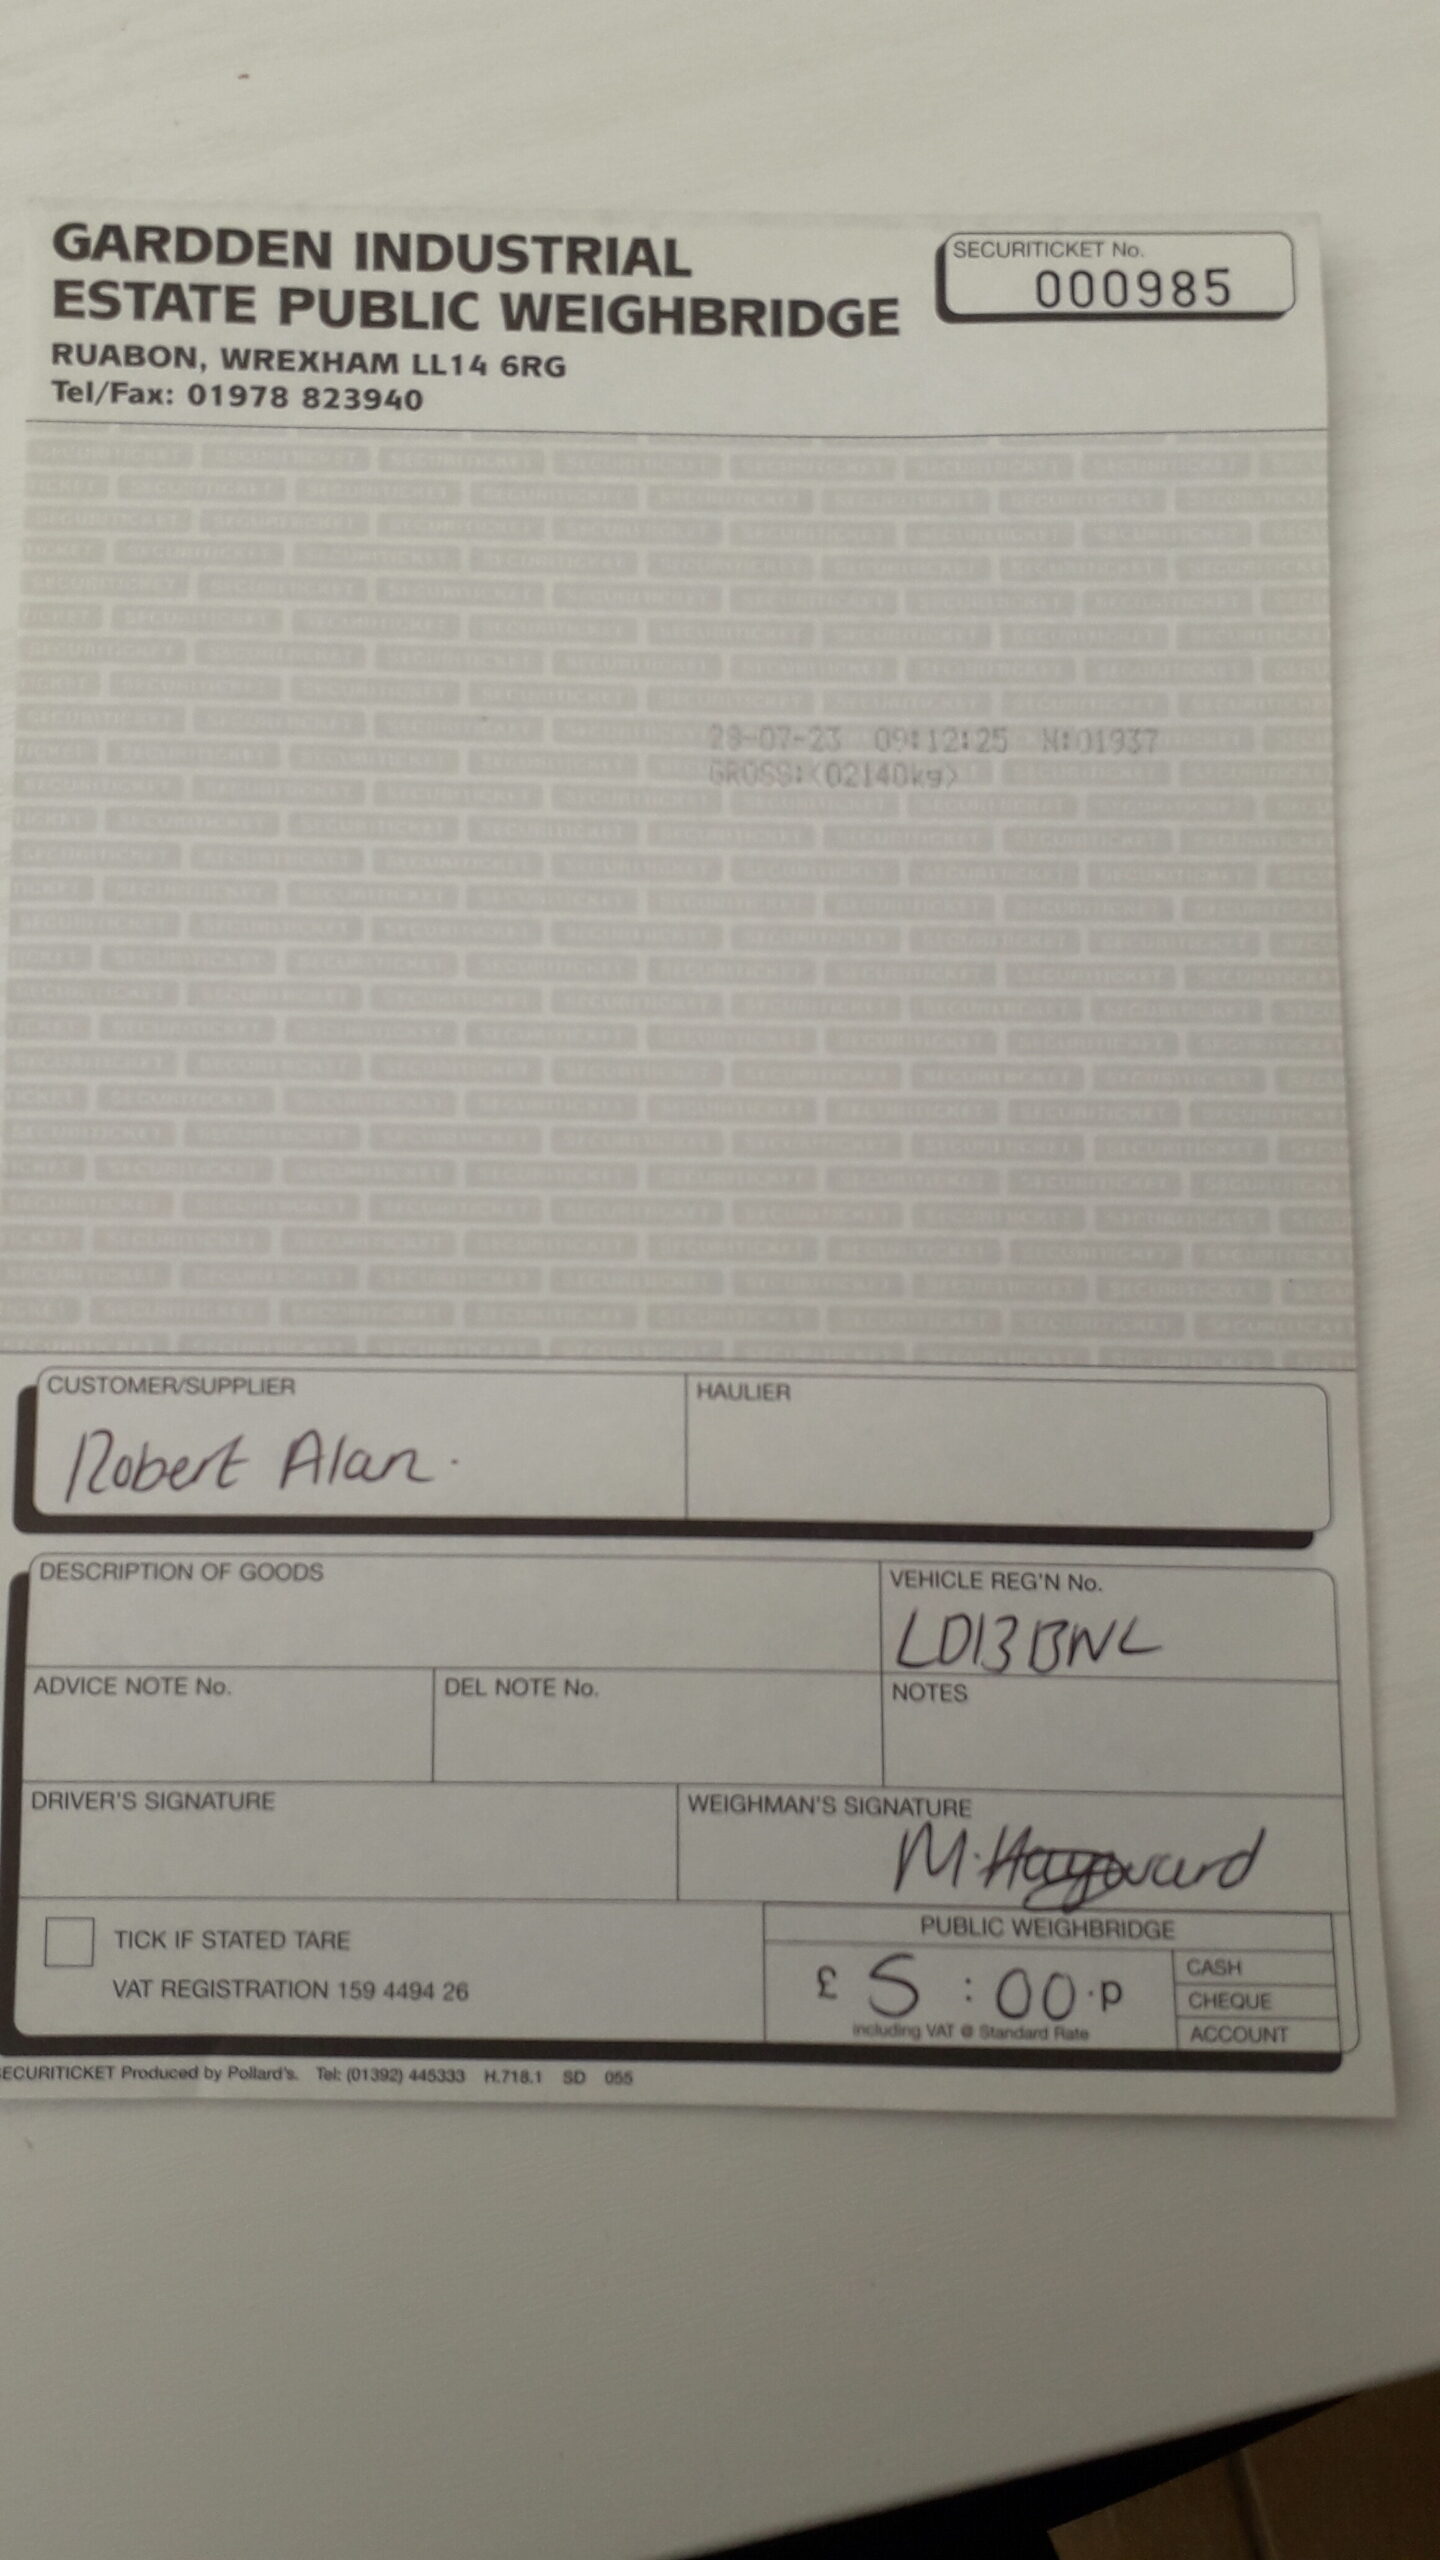 GARDDEN INDUSTRIAL
ESTATE PUBLIC WEIGHBRIDGE
RUABON, WREXHAM LL14 6RG
Tel/Fax: 01978 823940
SECURITICKET No.
000985
28-07-23 09:12:25 N:01937
GROSS:<02140kg>
CUSTOMER/SUPPLIER
Robert Alan.
HAULIER
DESCRIPTION OF GOODS
VEHICLE REG'N No.
LD13BNL
ADVICE NOTE No.
DEL NOTE No.
NOTES
DRIVER'S SIGNATURE
WEIGHMAN'S SIGNATURE
M. Hayward
TICK IF STATED TARE
VAT REGISTRATION 159 4494 26
PUBLIC WEIGHBRIDGE
£ 5 : 00 . p
including VAT @ Standard Rate
CASH
CHEQUE
ACCOUNT
SECURITICKET Produced by Pollard's. Tel: (01392) 445333 H.718.1 SD 055